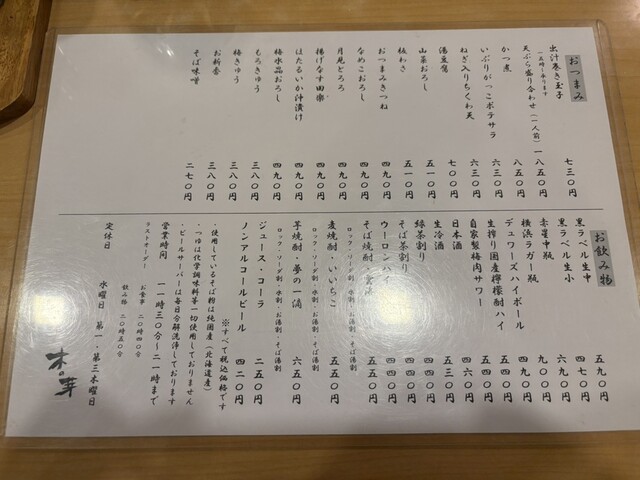 おつまみ
出汁巻き玉子 七三〇円
(一五時〜承ります)
天ぷら盛り合わせ(一人前) 一八五〇円
かつ煮 八五〇円
いぶりがっこポテサラ 六三〇円
ねぎ入りちくわ天 六三〇円
湯豆腐 七〇〇円
山菜おろし 五一〇円
板わさ 五一〇円
おつまみきつね 四九〇円
なめこおろし 四九〇円
月見とろろ 四九〇円
揚げなす田楽 四九〇円
ほたるいか沖漬け 四九〇円
梅水晶おろし 四九〇円
もろきゅう 三八〇円
梅きゅう 三八〇円
お新香 三八〇円
そば味噌 二七〇円
お飲み物
黒ラベル生中 五九〇円
黒ラベル生小 四七〇円
赤星中瓶 六九〇円
横浜ラガー瓶 九〇〇円
デュワーズハイボール 四九〇円
生搾り国産檸檬酎ハイ 五四〇円
自家製梅肉サワー 五四〇円
日本酒 四六〇円
生冷酒 五三〇円
緑茶割り
そば茶割り
ウーロンハイ
そば焼酎
ロック・ソーダ割・水割・お湯割・そば湯割
麦焼酎・いいちこ 五五〇円
ロック・ソーダ割・水割・お湯割・そば湯割
芋焼酎・夢の一滴 六五〇円
ロック・ソーダ割・水割・お湯割・そば湯割
ジュース・コーラ 二五〇円
ノンアルコールビール 四二〇円
※すべて税込価格です
・使用しているそば粉は純国産(北海道産)
・つゆは化学調味料等一切使用しておりません
・ビールサーバーは毎日分解洗浄しております
営業時間 一一時三〇分〜二一時まで
ラストオーダー お食事 二〇時四〇分
飲み物 二〇時五〇分
定休日 水曜日 第一・第三木曜日
木の芽